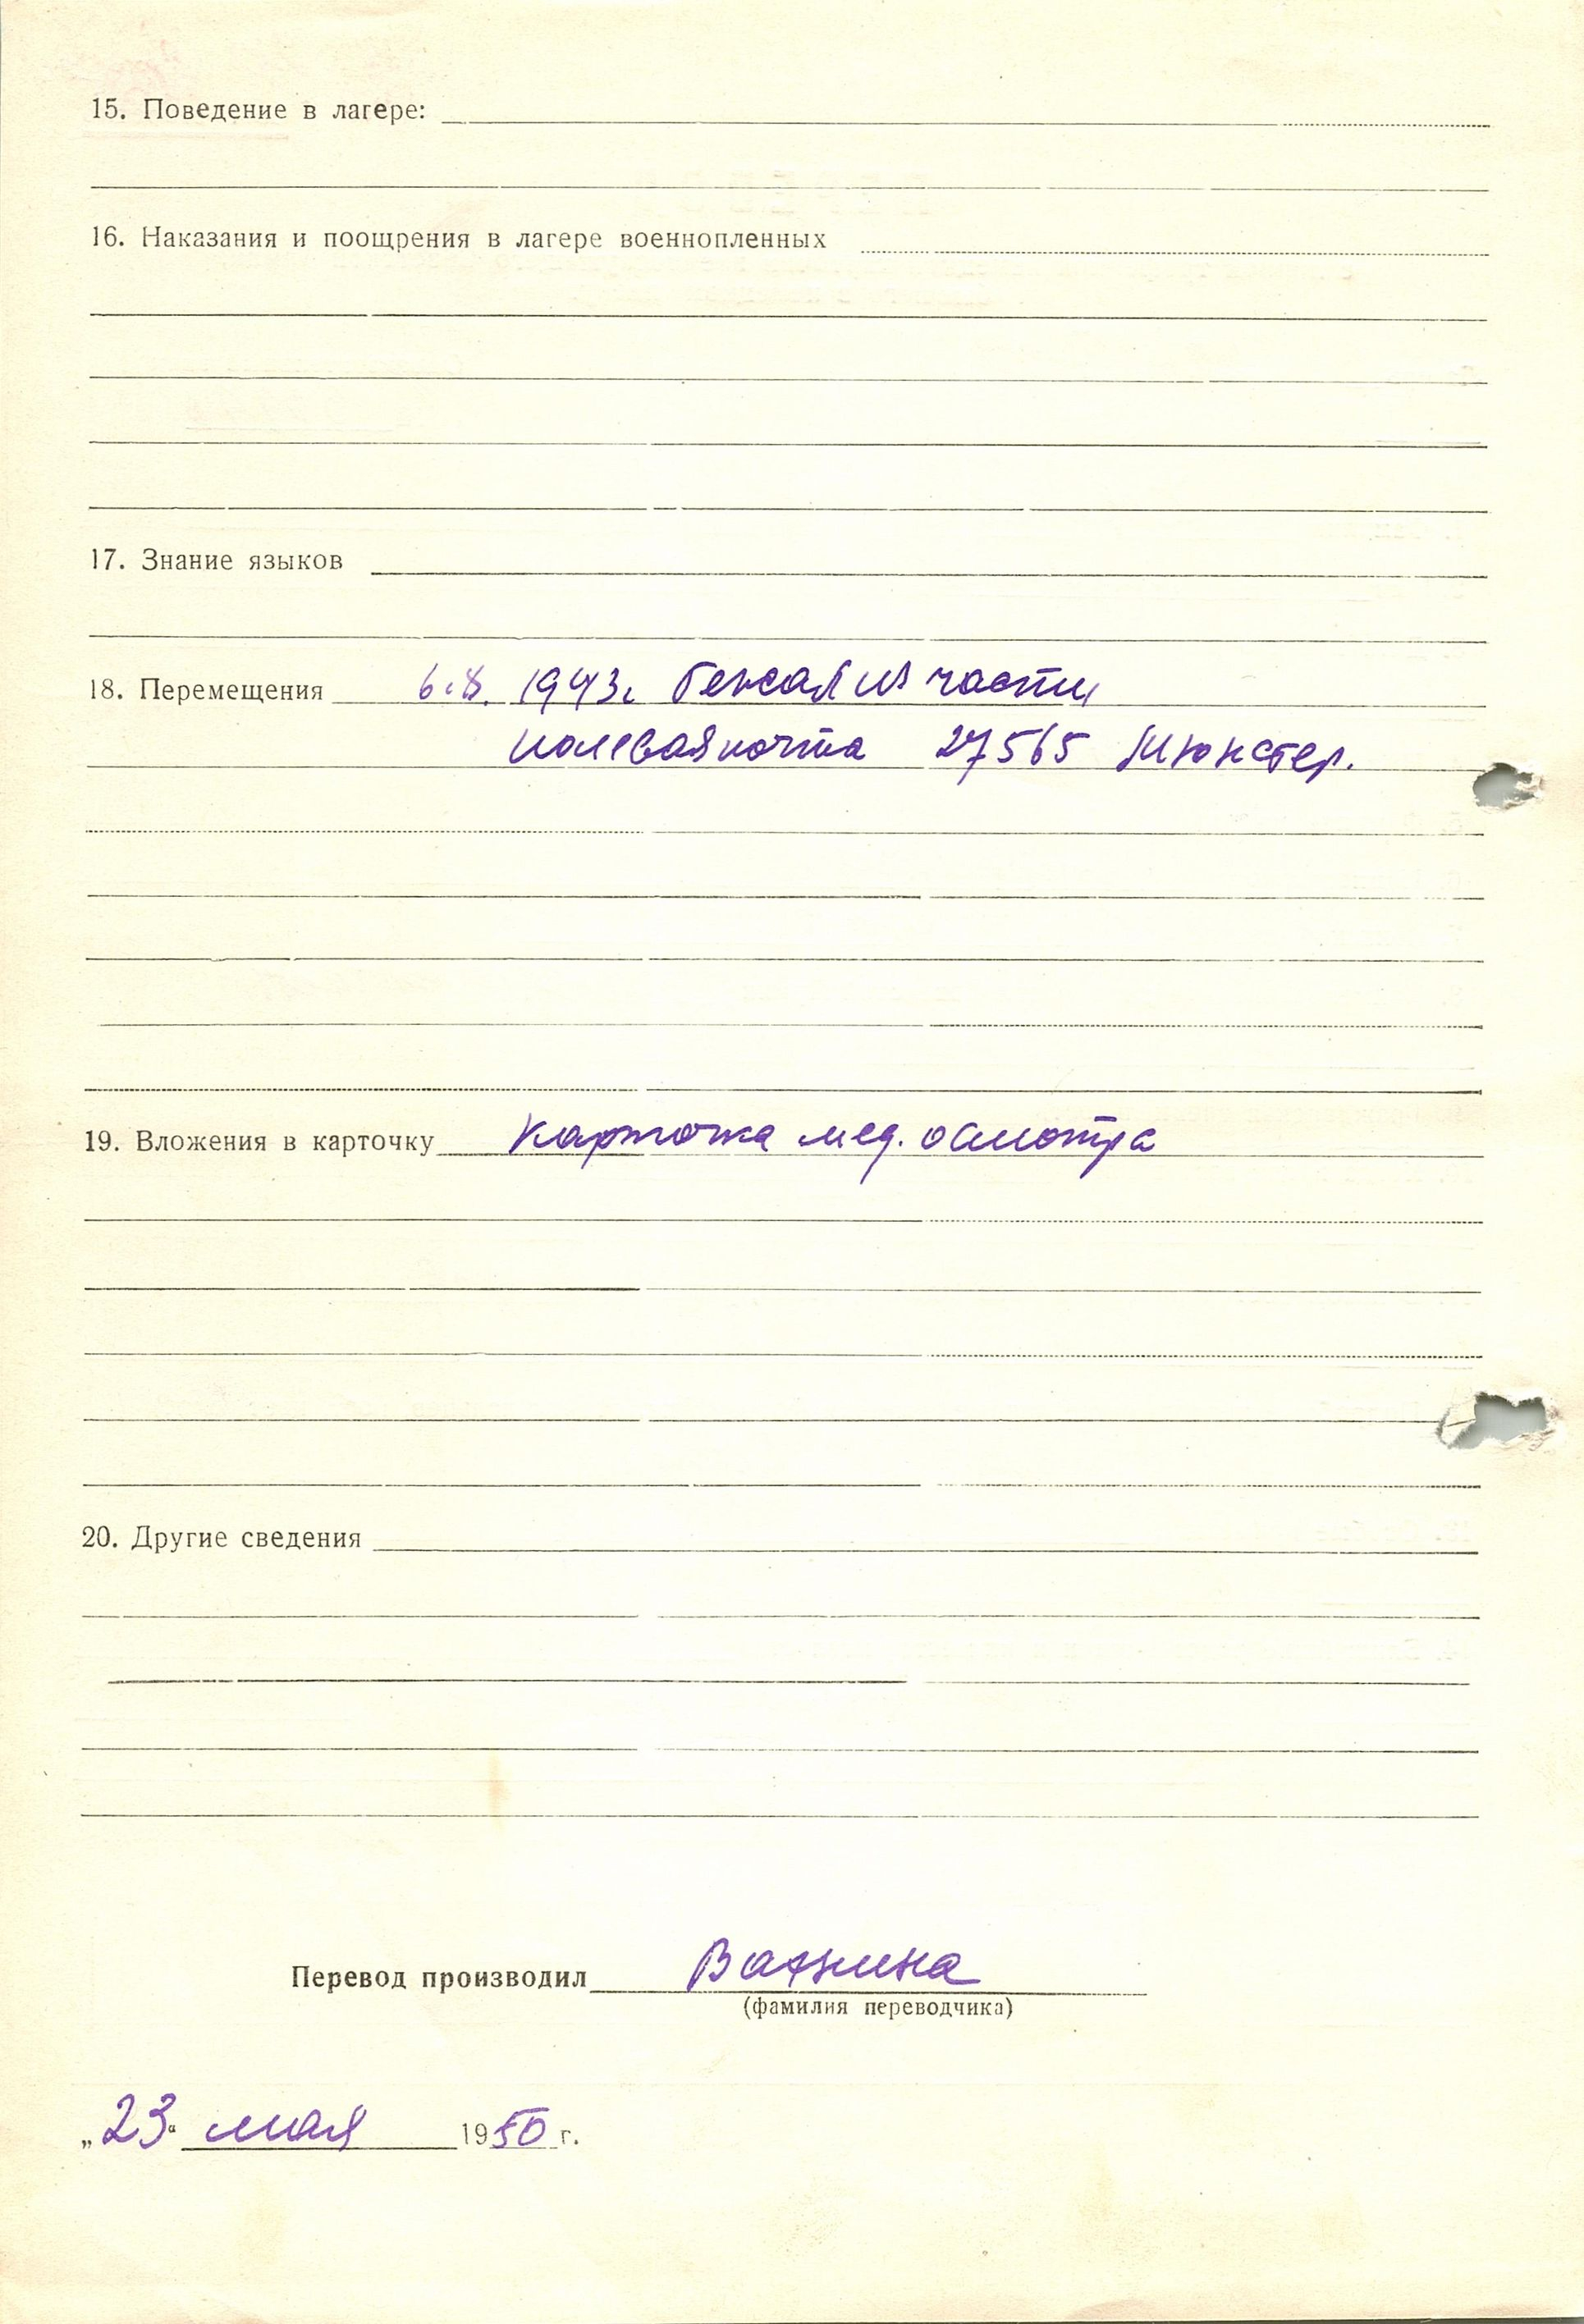 15. Поведение в лагере:
16. Наказания и поощрения в лагере военнопленных
17. Знание языков
18. Перемещения 6.8. 1943г. бежал из части
полевая почта 27565 Мюнстер.
19. Вложения в карточку карточка мед. осмотра
20. Другие сведения
Перевод производил
(фамилия переводчика)
„23“ мая 1950 г.